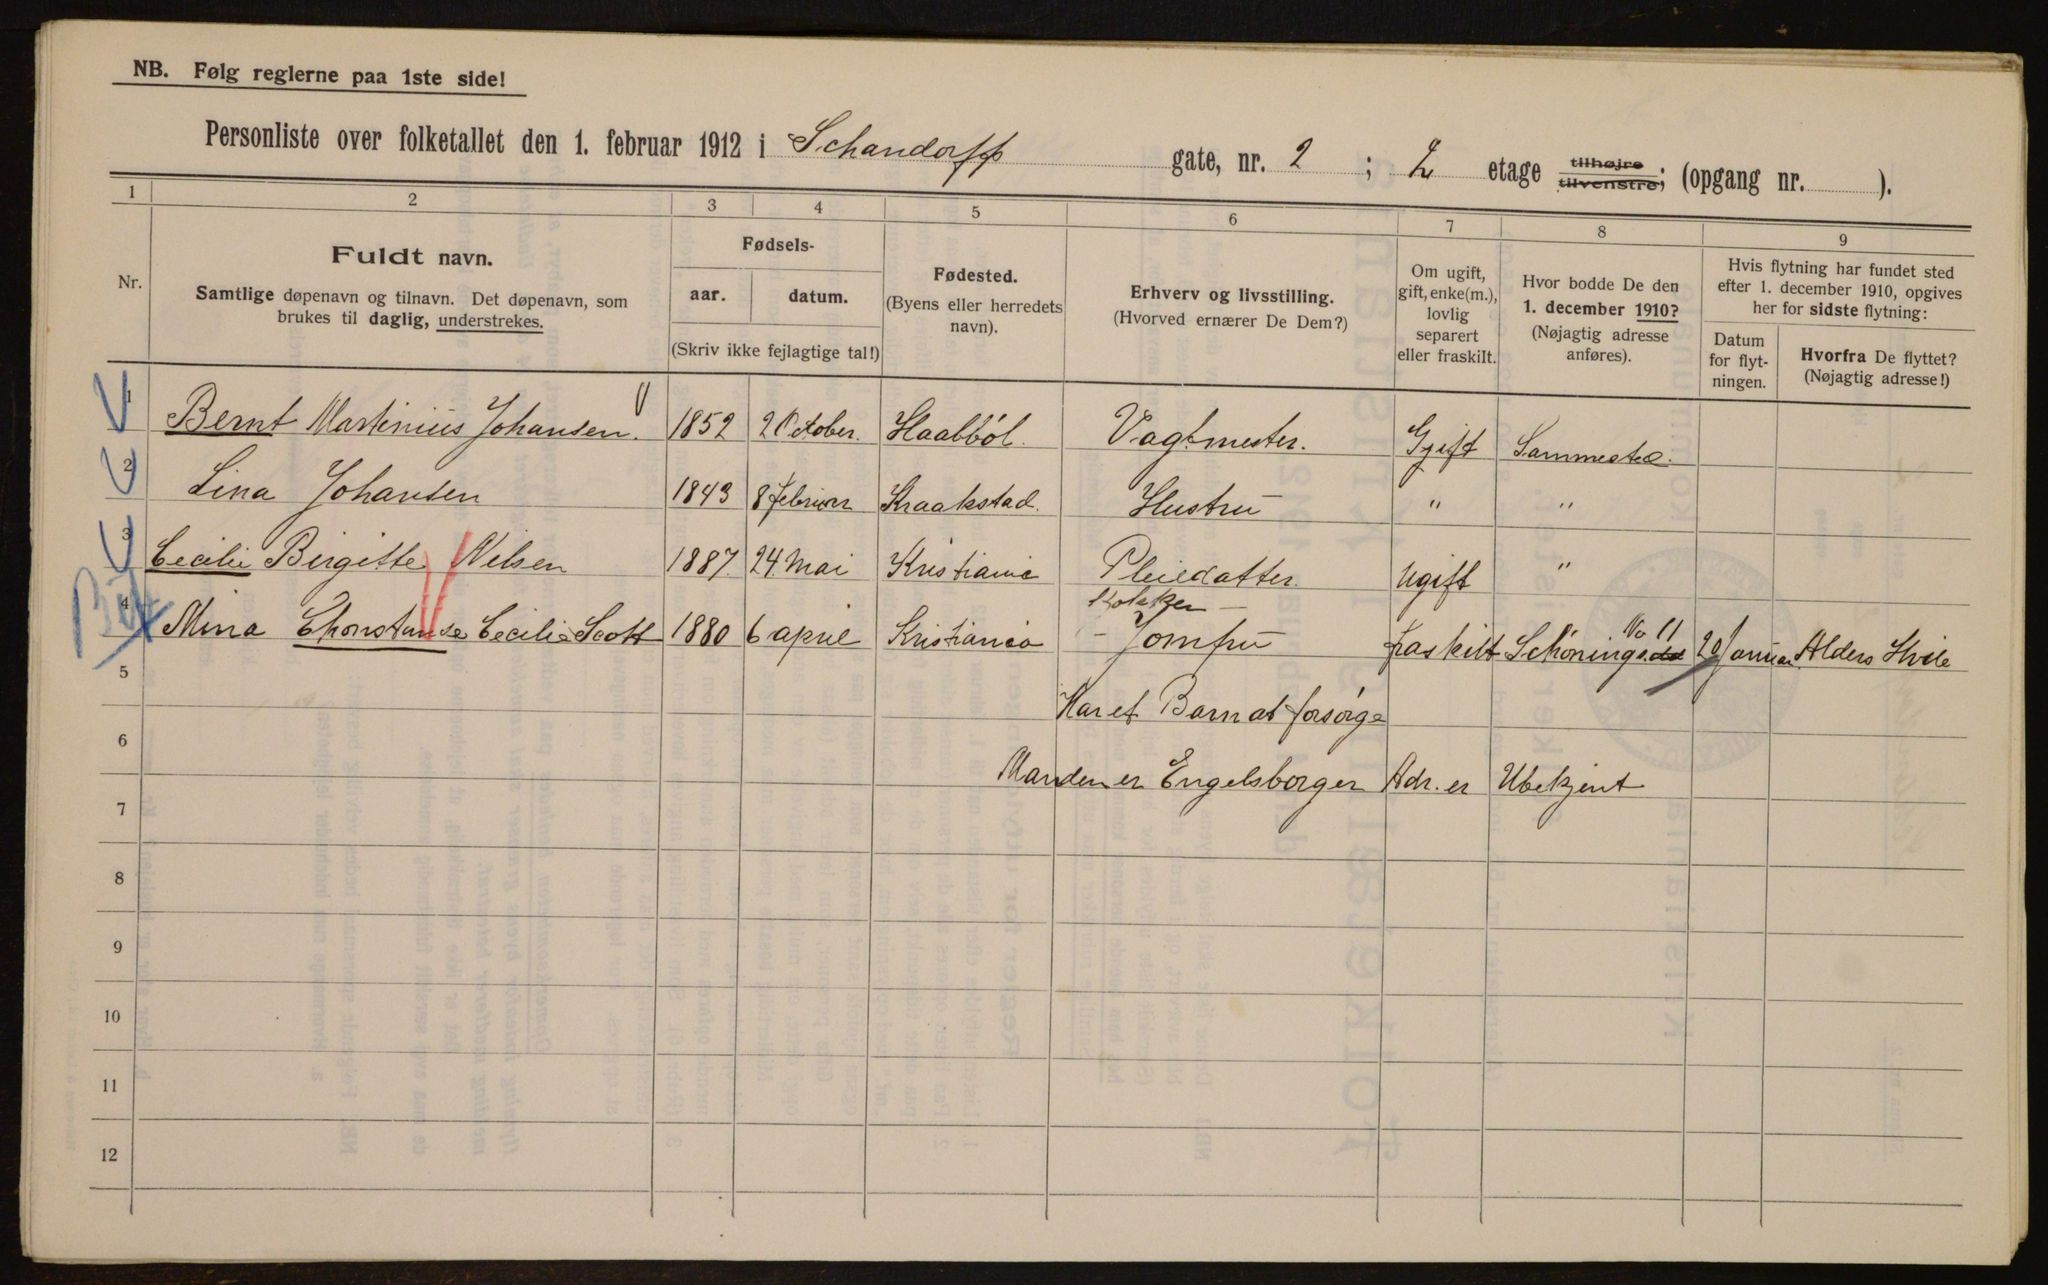 NB. Følg reglerne paa 1ste side!
Personliste over folketallet den 1. februar 1912 i Schandorff gate, nr. 2 ; 2 etage tilhøjre tilvenstre; (opgang nr. ).
1 2 3 4 5 6 7 8 9
Nr.
Fuldt navn.
Samtlige døpenavn og tilnavn. Det døpenavn, som
brukes til daglig, understrekes.
Fødsels-
aar.
datum.
(Skriv ikke fejlagtige tal!)
Fødested.
(Byens eller herredets
navn).
Erhverv og livsstilling.
(Hvorved ernærer De Dem?)
Om ugift,
gift, enke(m.),
lovlig
separert
eller fraskilt.
Hvor bodde De den
1. december 1910?
(Nøjagtig adresse
anføres).
Hvis flytning har fundet sted
efter 1. december 1910, opgives
her for sidste flytning:
Datum
for flyt-
ningen.
Hvorfra De flyttet?
(Nøjagtig adresse!)
1 Bernt Martinius Johansen. 1852 2 October. Haabböl. Vagtmester. Gift Sammested.
2 Lina Johansen 1843 8 februar Kraakstad. Hustru " "
3 Cecilie Birgitte Nilsen 1887. 24 Mai Kristiania Pleiedatter. Ugift "
Kokken
4 Mina Chonstanse Cecilie Scott 1880 6 april Kristiania - Jomfru fraskilt Schönings No 11 20 Januar Alders Hvile
5 Har et Barn at forsørge
6 Manden er Engelsborger Adr. er Ubekjent
7
8
9
10
11
12